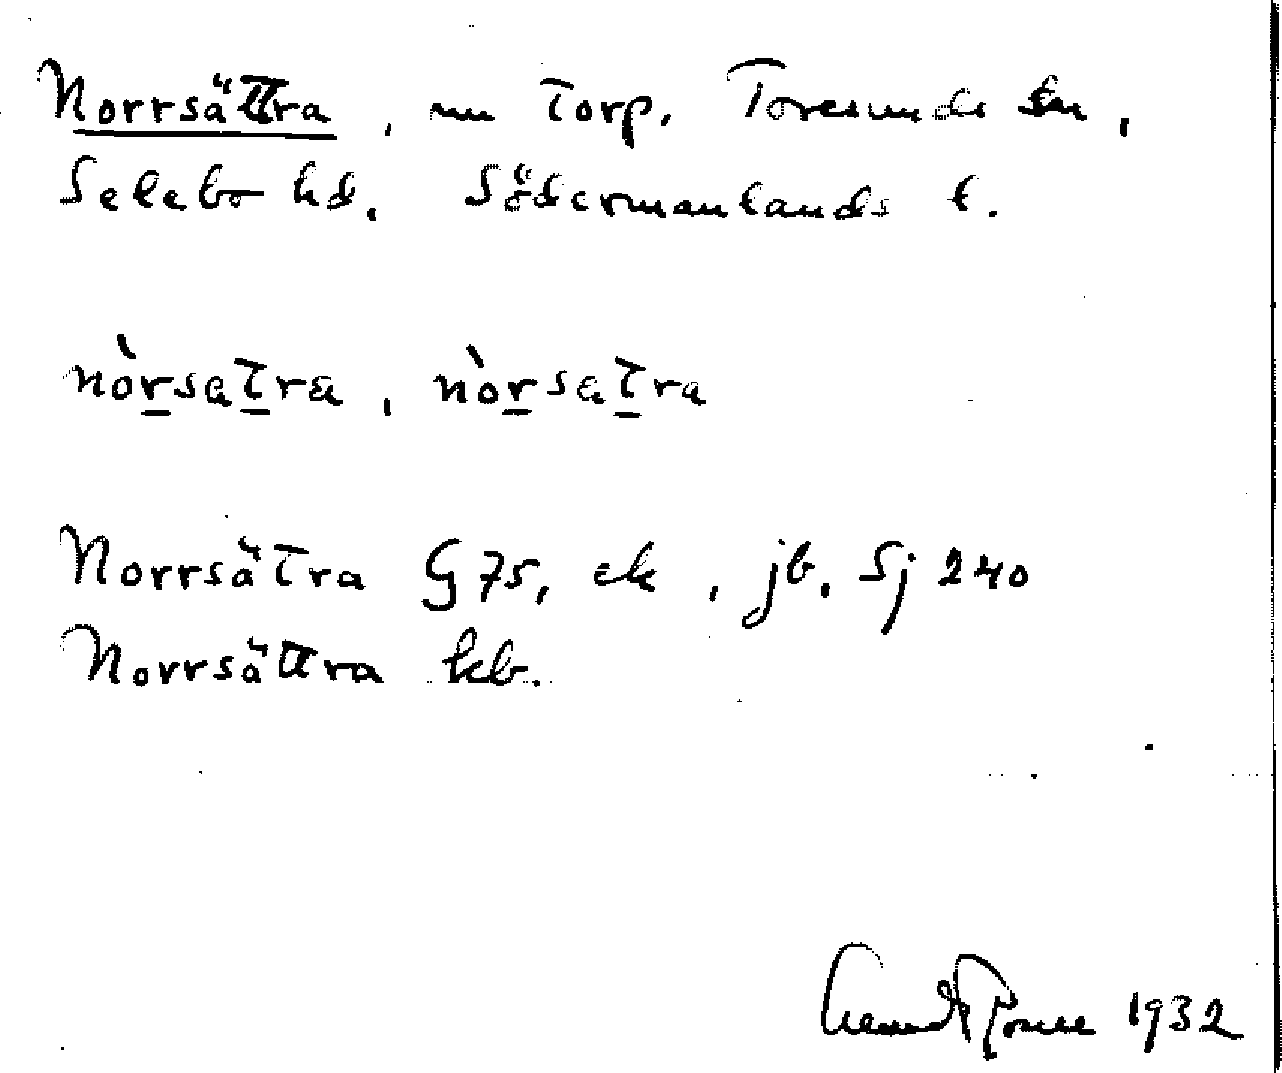 Norrsättra, nu Torp. Toresunds sn,
Selebo hd. Södermanlands l.
nòrsatra, nòrsatra
Norrsätra G 75, ek, jb. Sj 240
Norrsättra kb.
1932